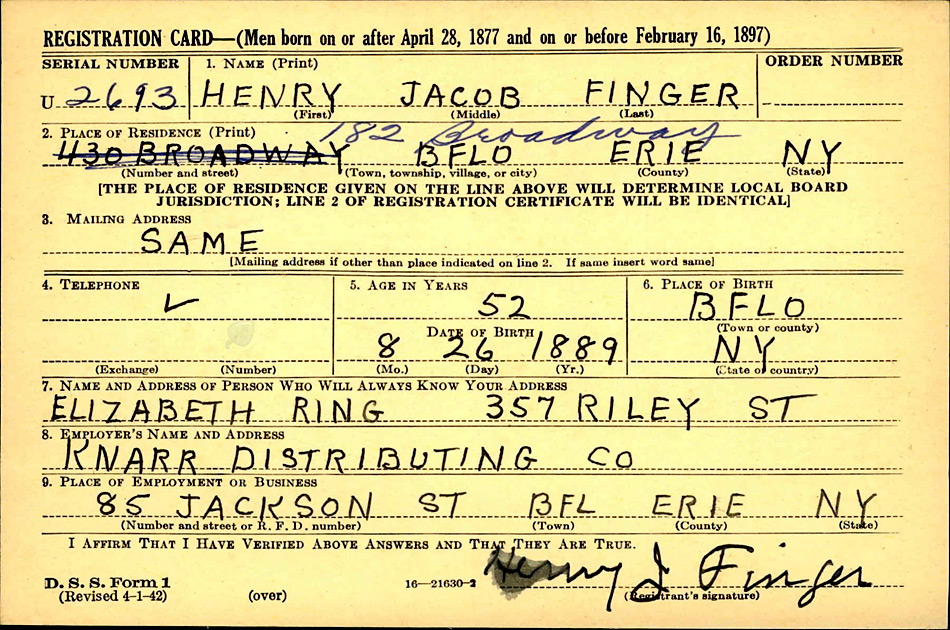 REGISTRATION CARD—(Men born on or after April 28, 1877 and on or before February 16, 1897)
SERIAL NUMBER 1. NAME (Print) ORDER NUMBER
U 2693 HENRY JACOB FINGER
(First) (Middle) (Last)
2. PLACE OF RESIDENCE (Print) 182 Broadway
430 BROADWAY BFLO ERIE NY
(Number and street) (Town, township, village, or city) (County) (State)
[THE PLACE OF RESIDENCE GIVEN ON THE LINE ABOVE WILL DETERMINE LOCAL BOARD
JURISDICTION; LINE 2 OF REGISTRATION CERTIFICATE WILL BE IDENTICAL]
3. MAILING ADDRESS
SAME
[Mailing address if other than place indicated on line 2. If same insert word same]
4. TELEPHONE 5. AGE IN YEARS 6. PLACE OF BIRTH
52 BFLO
DATE OF BIRTH (Town or county)
8 26 1889 NY
(Exchange) (Number) (Mo.) (Day) (Yr.) (State or country)
7. NAME AND ADDRESS OF PERSON WHO WILL ALWAYS KNOW YOUR ADDRESS
ELIZABETH RING 357 RILEY ST
8. EMPLOYER'S NAME AND ADDRESS
KNARR DISTRIBUTING CO
9. PLACE OF EMPLOYMENT OR BUSINESS
85 JACKSON ST BFL ERIE NY
(Number and street or R. F. D. number) (Town) (County) (State)
I AFFIRM THAT I HAVE VERIFIED ABOVE ANSWERS AND THAT THEY ARE TRUE.
Henry J Finger
D. S. S. Form 1 16—21630-2
(Revised 4-1-42) (over) (Registrant's signature)